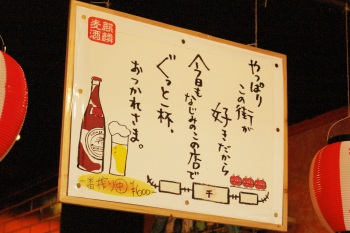 麒麟
麦酒
やっぱり
この街が
好きだから
今日も
なじみのこの店で
ぐっと一杯、
おつかれさま。
一番搾り
¥600
千